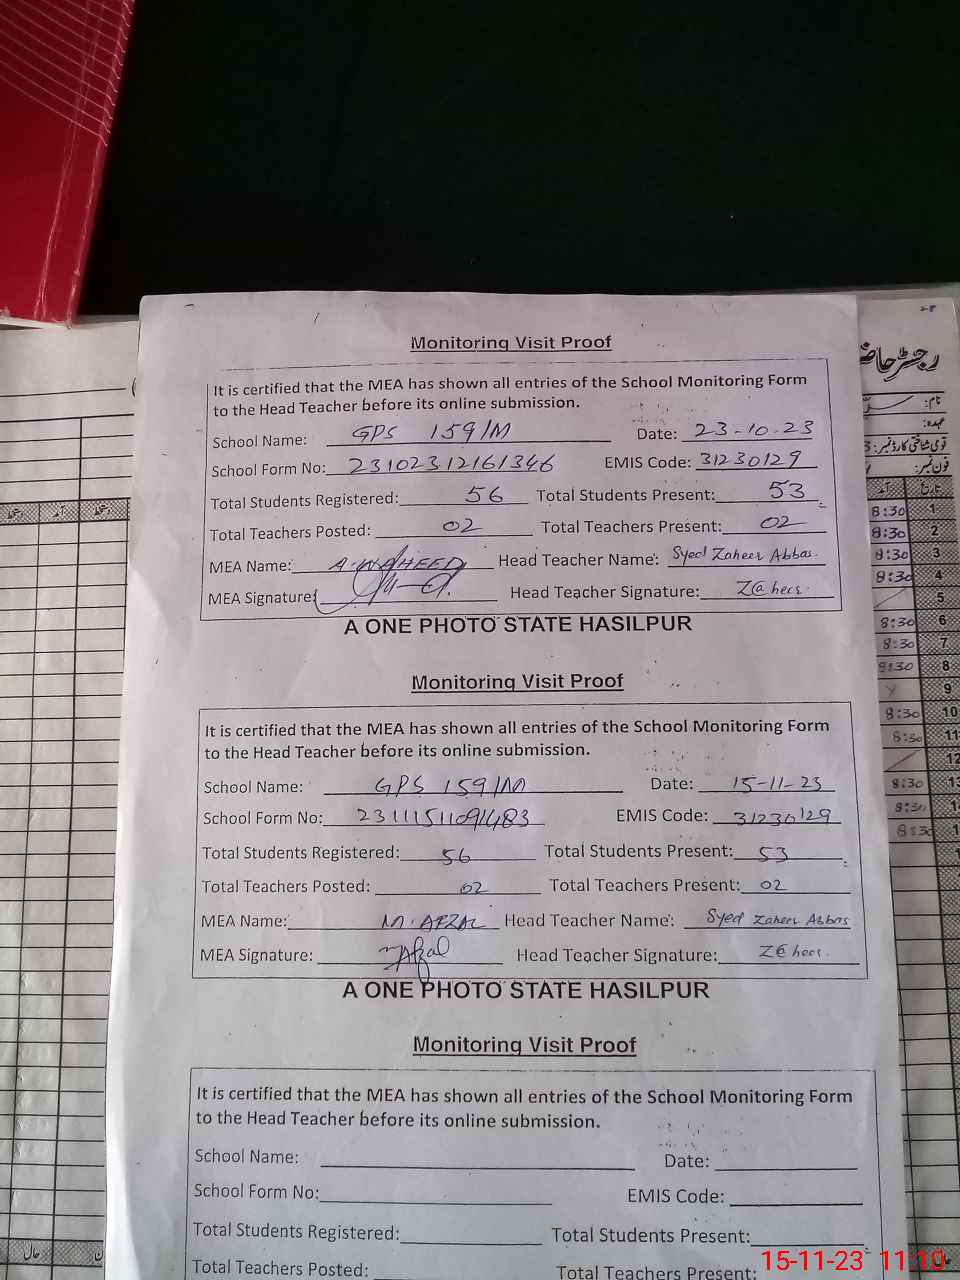 Monitoring Visit Proof
It is certified that the MEA has shown all entries of the School Monitoring Form
to the Head Teacher before its online submission.
School Name: GPS 159/M Date: 23-10-23
School Form No: 23102312161346 EMIS Code: 31230129
Total Students Registered: 56 Total Students Present: 53
Total Teachers Posted: 02 Total Teachers Present: 02
MEA Name: A.WAHEED Head Teacher Name: Syed Zaheer Abbas.
MEA Signature: Head Teacher Signature: Z@heer.
A ONE PHOTO STATE HASILPUR
Monitoring Visit Proof
It is certified that the MEA has shown all entries of the School Monitoring Form
to the Head Teacher before its online submission.
School Name: GPS 159/M Date: 15-11-23
School Form No: 23111511091483 EMIS Code: 31230129
Total Students Registered: 56 Total Students Present: 53
Total Teachers Posted: 02 Total Teachers Present: 02
MEA Name: M.AFZAL Head Teacher Name: Syed Zaheer Abbas
MEA Signature: Afzal Head Teacher Signature: Z@heer.
A ONE PHOTO STATE HASILPUR
Monitoring Visit Proof
It is certified that the MEA has shown all entries of the School Monitoring Form
to the Head Teacher before its online submission.
School Name: Date:
School Form No: EMIS Code:
Total Students Registered: Total Students Present:
Total Teachers Posted: Total Teachers Present:
رجسٹر حاض
نام:
عہدہ:
قومی شناختی کارڈ نمبر: 3
فون نمبر:
آمد تاریخ
8:30 1
8:30 2
8:30 3
8:30 4
5
8:30 6
8:30 7
8:30 8
9
8:30 10
8:30 11
12
8:30 13
8:30
8:30
15-11-23 11:10